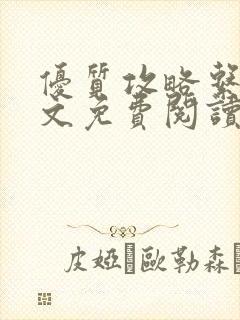 優質攻略繫
文免費閱讀
皮婭·歐勒森